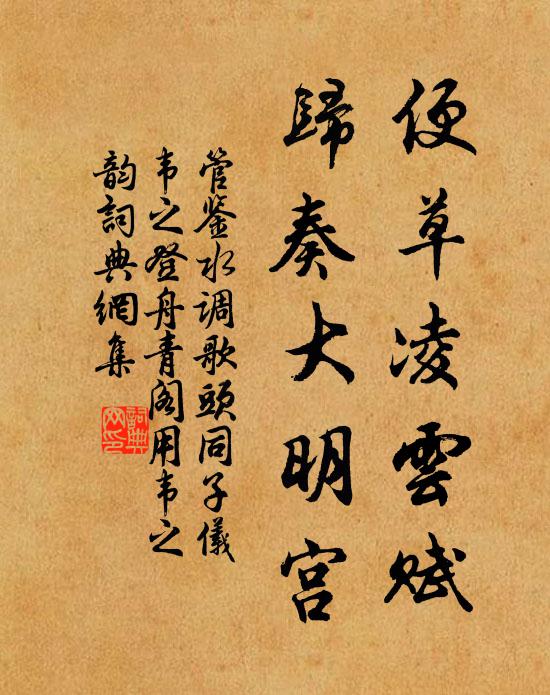 便草凌雲赋
歸奏大明宫
管鉴水调歌頭同子儀
韦之登舟青阁用韦之
韵詞典網集
詞典
网印